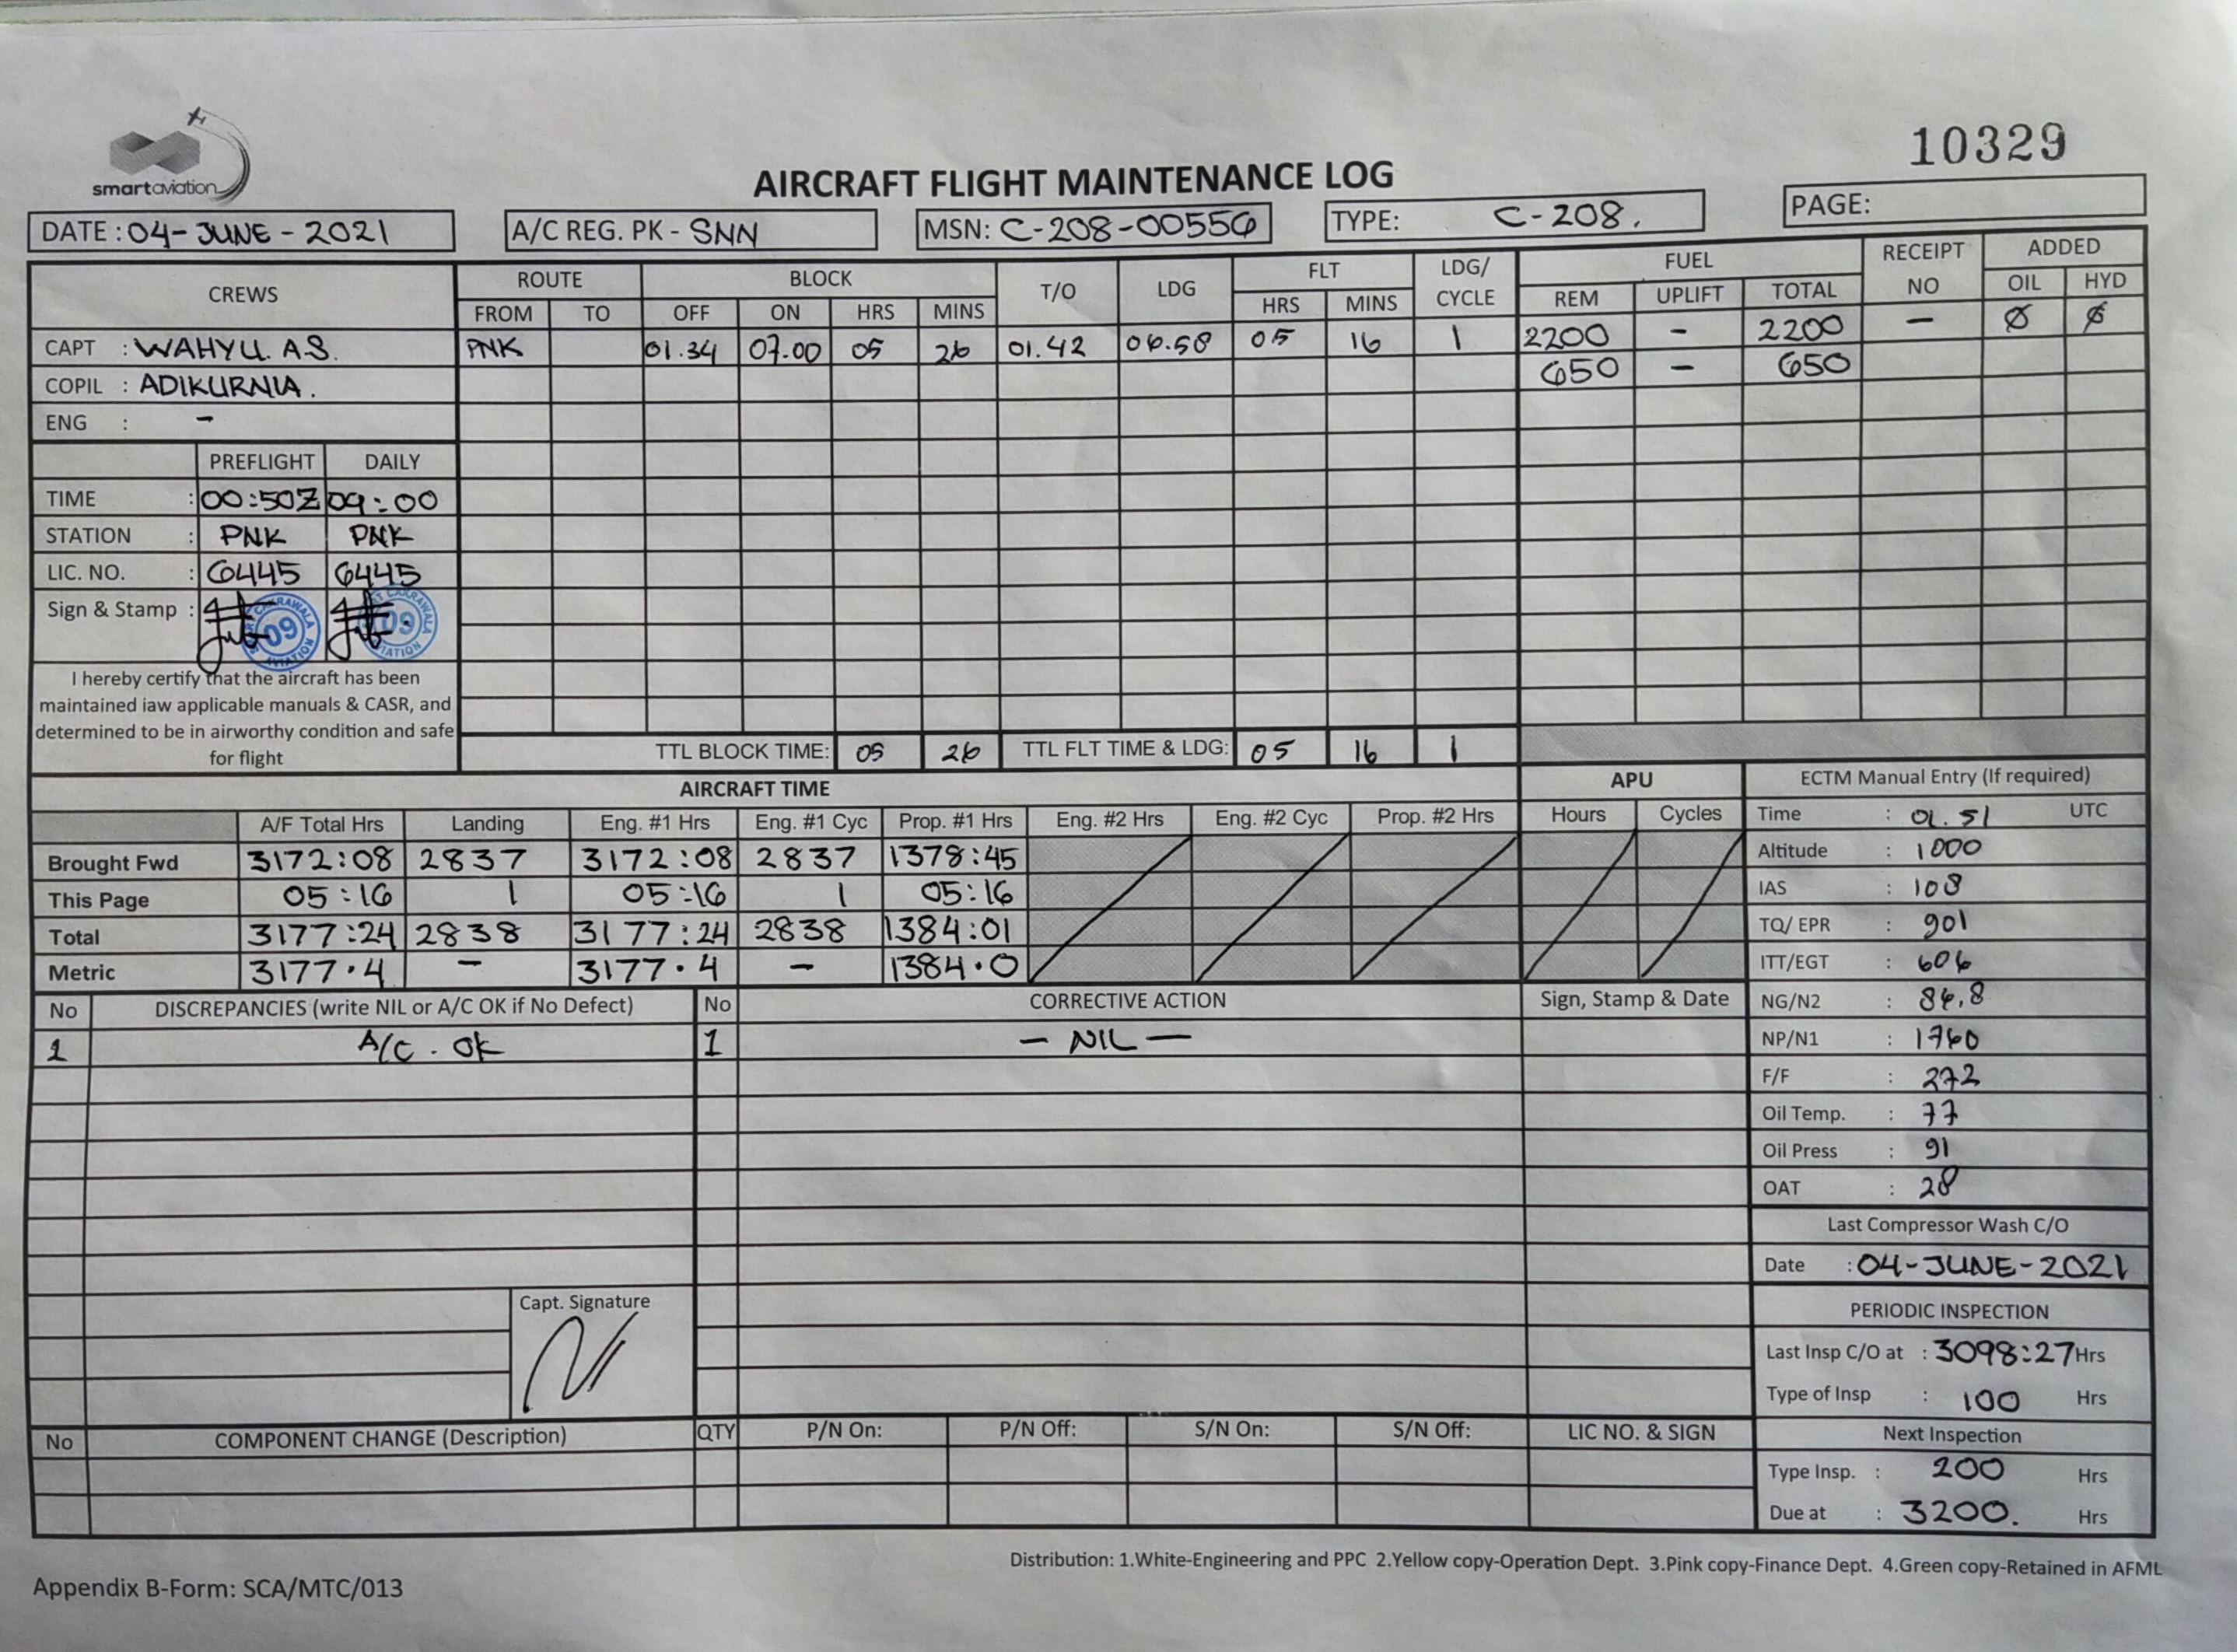 smartaviation
10329
AIRCRAFT FLIGHT MAINTENANCE LOG
DATE : 04-JUNE-2021 A/C REG. PK - SNN MSN: C-208-00556 TYPE: C-208. PAGE:
CREWS ROUTE BLOCK T/O LDG FLT LDG/ CYCLE FUEL RECEIPT NO ADDED
FROM TO OFF ON HRS MINS HRS MINS REM UPLIFT TOTAL OIL HYD
CAPT : WAHYU. A.S. PNK 01.34 07.00 05 26 01.42 06.58 05 16 1 2200 - 2200 - Ø Ø
COPIL : ADIKURNIA. 650 - 650
ENG : -
PREFLIGHT DAILY
TIME : 00:50Z 09:00
STATION : PNK PNK
LIC. NO. : 6445 6445
Sign & Stamp : 09 CAKRAWALA AVIATION 09 CAKRAWALA
I hereby certify that the aircraft has been
maintained iaw applicable manuals & CASR, and
determined to be in airworthy condition and safe
for flight
TTL BLOCK TIME: 05 26 TTL FLT TIME & LDG: 05 16 1
AIRCRAFT TIME APU
A/F Total Hrs Landing Eng. #1 Hrs Eng. #1 Cyc Prop. #1 Hrs Eng. #2 Hrs Eng. #2 Cyc Prop. #2 Hrs Hours Cycles
Brought Fwd 3172:08 2837 3172:08 2837 1378:45
This Page 05:16 1 05:16 1 05:16
Total 3177:24 2838 3177:24 2838 1384:01
Metric 3177.4 - 3177.4 - 1384.0
ECTM Manual Entry (If required)
Time : 01.51 UTC
Altitude : 1000
IAS : 108
TQ/ EPR : 901
ITT/EGT : 606
NG/N2 : 86.8
NP/N1 : 1760
F/F : 272
Oil Temp. : 77
Oil Press : 91
OAT : 28
Last Compressor Wash C/O
Date : 04-JUNE-2021
PERIODIC INSPECTION
Last Insp C/O at : 3098:27 Hrs
Type of Insp : 100 Hrs
Next Inspection
Type Insp. : 200 Hrs
Due at : 3200. Hrs
No DISCREPANCIES (write NIL or A/C OK if No Defect) No CORRECTIVE ACTION Sign, Stamp & Date
1 A/C . OK 1 - NIL -
Capt. Signature
No COMPONENT CHANGE (Description) QTY P/N On: P/N Off: S/N On: S/N Off: LIC NO. & SIGN
Distribution: 1.White-Engineering and PPC 2.Yellow copy-Operation Dept. 3.Pink copy-Finance Dept. 4.Green copy-Retained in AFML
Appendix B-Form: SCA/MTC/013